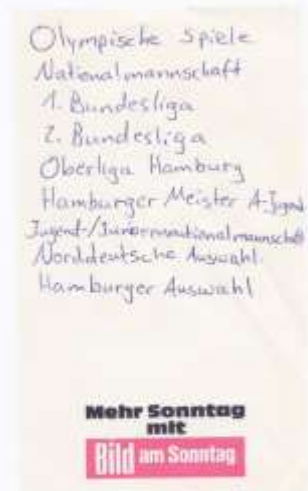 Olympische Spiele
Nationalmannschaft
1. Bundesliga
2. Bundesliga
Oberliga Hamburg
Hamburger Meister A-Jugend
Jugend-/Juniornationalmannschaft
Norddeutsche Auswahl
Hamburger Auswahl
Mehr Sonntag
mit
Bild am Sonntag